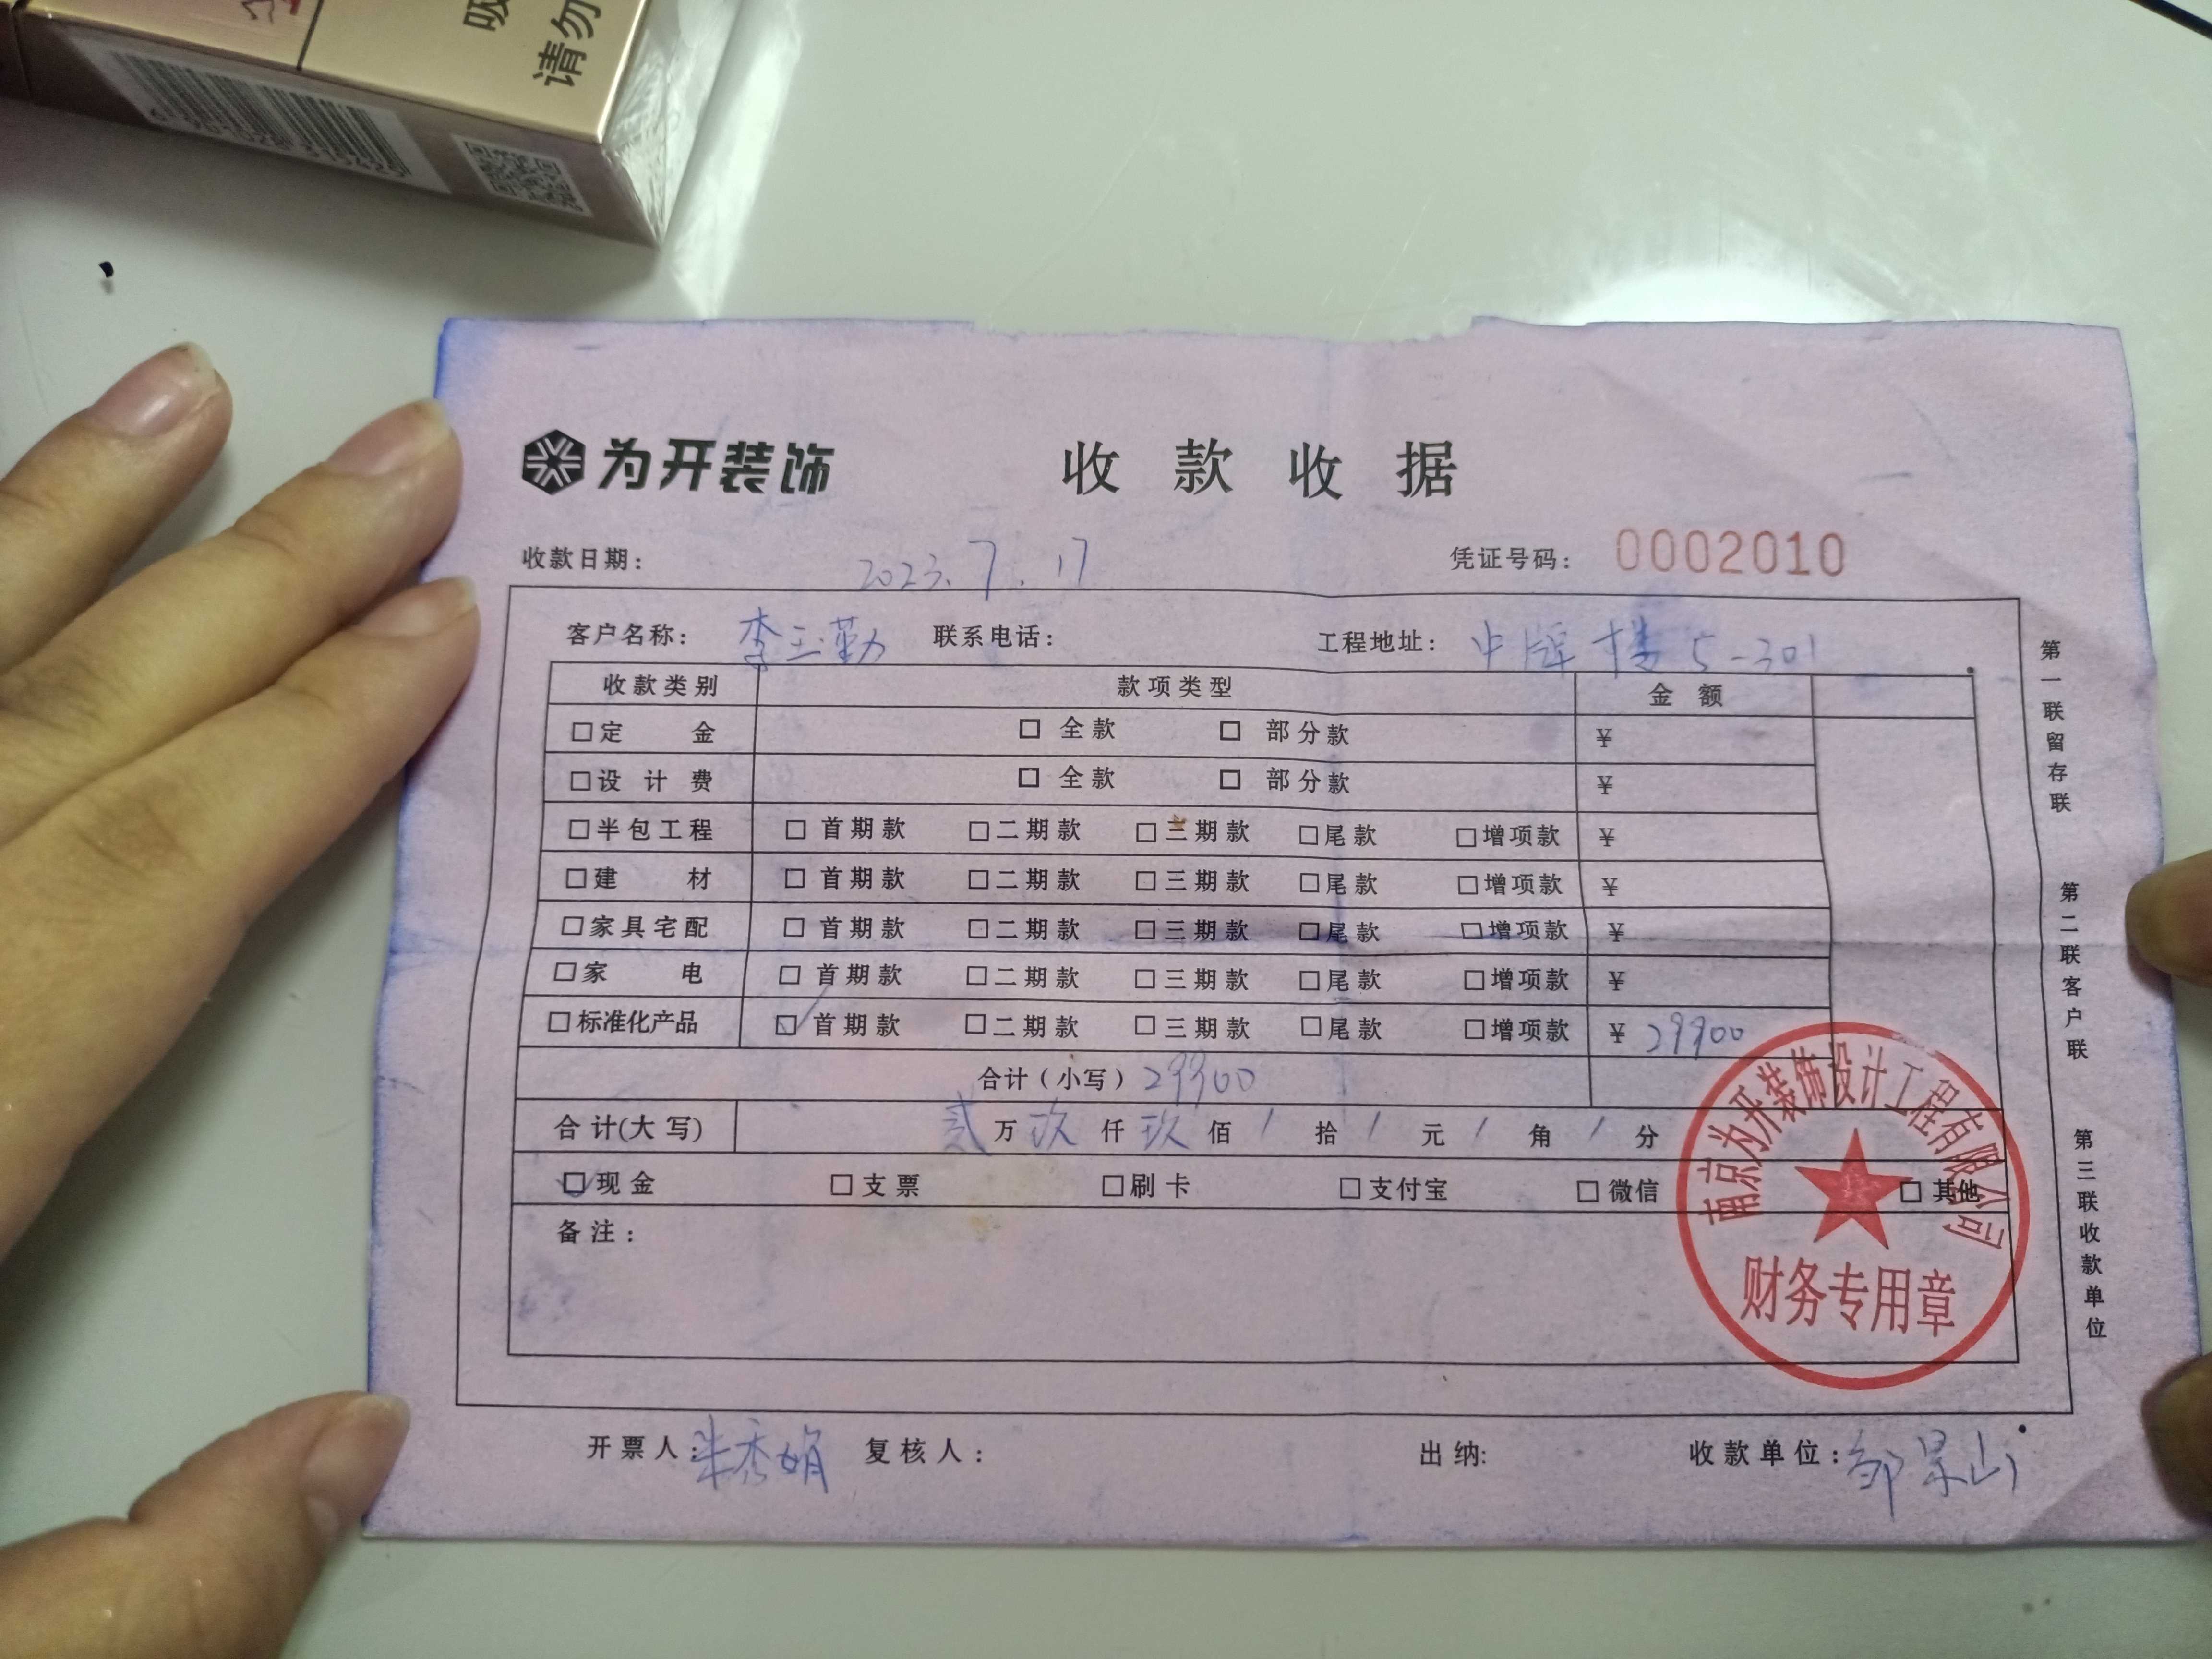 请勿
为开装饰 收款收据
收款日期: 2023.7.17 凭证号码: 0002010
客户名称: 李玉勤 联系电话: 工程地址: 中牌楼 5-301
收款类别 款项类型 金额
□定金 □全款 □部分款 ¥
□设计费 □全款 □部分款 ¥
□半包工程 □首期款 □二期款 □三期款 □尾款 □增项款 ¥
□建材 □首期款 □二期款 □三期款 □尾款 □增项款 ¥
□家具宅配 □首期款 □二期款 □三期款 □尾款 □增项款 ¥
□家电 □首期款 □二期款 □三期款 □尾款 □增项款 ¥
□标准化产品 ☑首期款 □二期款 □三期款 □尾款 □增项款 ¥29900
合计(小写) 29900
合计(大写) 贰万玖仟玖佰/拾/元/角/分
☑现金 □支票 □刷卡 □支付宝 □微信 □其他
备注:
南京为开装饰设计工程有限公司
财务专用章
开票人: 朱秀娟 复核人: 出纳: 收款单位: 邹景山
第一联留存联
第二联客户联
第三联收款单位